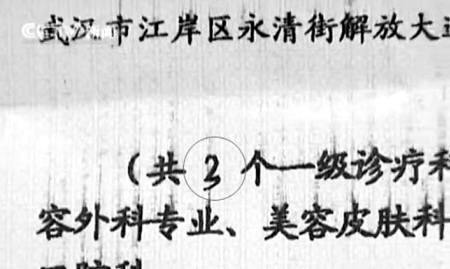 武汉市江岸区永清街解放大道
(共3个一级诊疗科
容外科专业、美容皮肤科